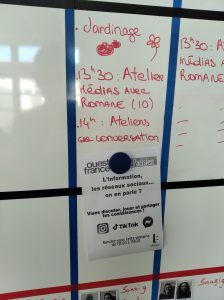 - Jardinage
13h30 : Atelier
MÉDIAS AVEC
ROMANE (10)
14h : Ateliers
CONVERSATION
13h30 :
MÉDIAS
ROMANE
ouest
france
L'information,
les réseaux sociaux...
on en parle ?
Venez discuter, jouer et partager
vos connaissances !
TikTok